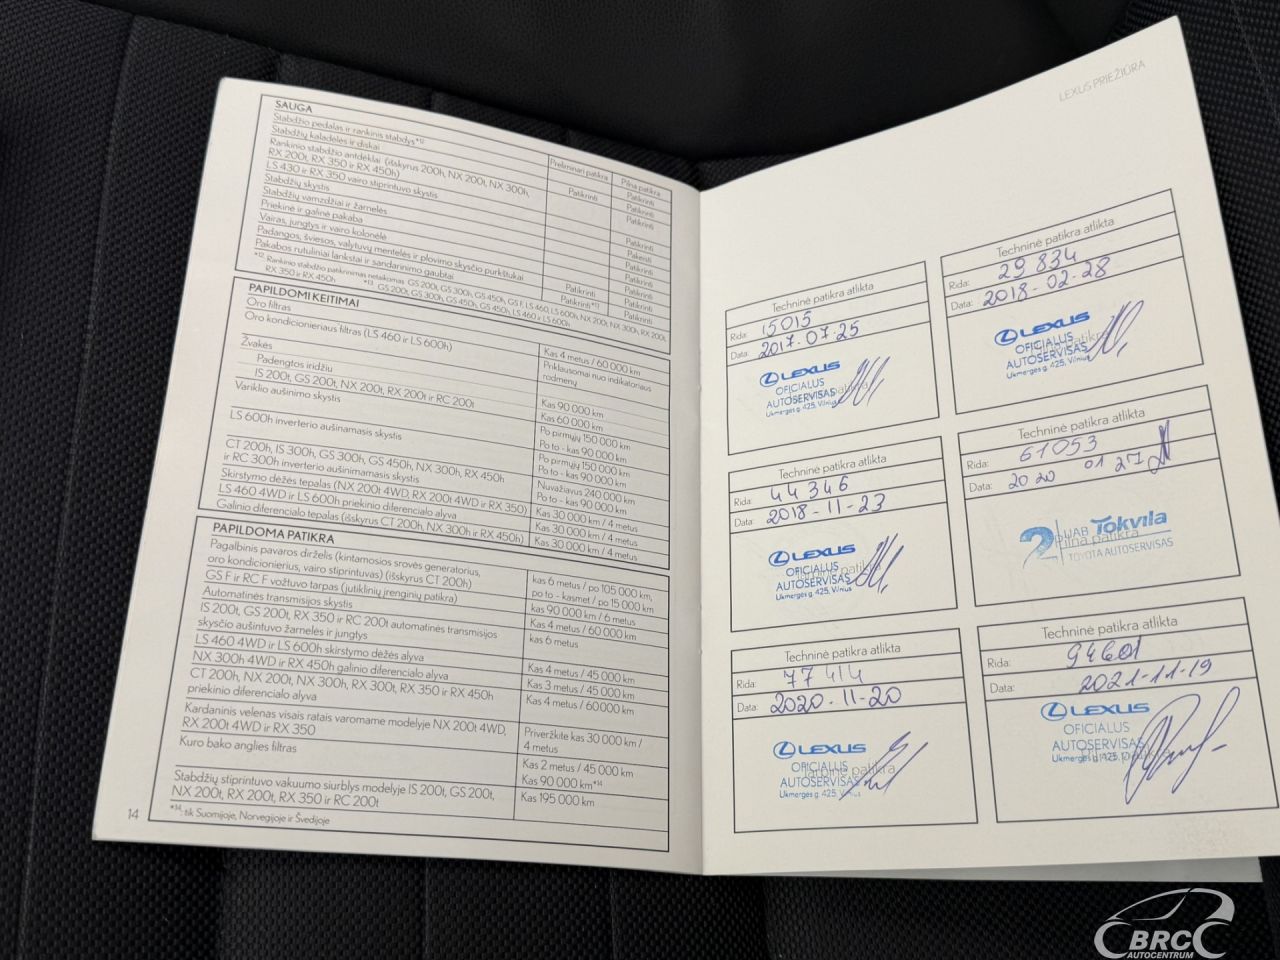 SAUGA
Preliminari patikra
Pilna patikra
Stabdžio pedalas ir rankinis stabdys*12
Patikrinti
Patikrinti
Stabdžių kaladėlės ir diskai
Patikrinti
Rankinio stabdžio antdėklai (išskyrus 200h, NX 200t, NX 300h,
RX 200t, RX 350 ir RX 450h)
Patikrinti
LS 430 ir RX 350 vairo stiprintuvo skystis
Patikrinti
Stabdžių skystis
Pakeisti
Stabdžių vamzdžiai ir žarnelės
Patikrinti
Priekinė ir galinė pakaba
Patikrinti
Vairas, jungtys ir vairo kolonėlė
Patikrinti
Padangos, šviesos, valytuvų mentelės ir plovimo skysčio purkštukai
Patikrinti
Patikrinti
Pakabos rutuliniai lankstai ir sandarinimo gaubtai
Patikrinti*13
Patikrinti
*12. Rankinio stabdžio patikrinimas netaikomas GS 200t, GS 300h, GS 450h, GS F, LS 460, LS 600h, NX 200t, NX 300h, RX 200t,
RX 350 ir RX 450h
*13. GS 200t, GS 300h, GS 450h, GS 450h, LS 460 ir LS 600h.
PAPILDOMI KEITIMAI
Oro filtras
Kas 4 metus / 60 000 km
Oro kondicionieriaus filtras (LS 460 ir LS 600h)
Priklausomai nuo indikatoriaus
rodmenų
Žvakės
Padengtos iridžiu
Kas 90 000 km
IS 200t, GS 200t, NX 200t, RX 200t ir RC 200t
Kas 60 000 km
Variklio aušinimo skystis
Po pirmųjų 150 000 km
Po to - kas 90 000 km
LS 600h inverterio aušinamasis skystis
Po pirmųjų 150 000 km
Po to - kas 90 000 km
CT 200h, IS 300h, GS 300h, GS 450h, NX 300h, RX 450h
ir RC 300h inverterio aušinimamasis skystis
Nuvažiavus 240 000 km
Po to - kas 90 000 km
Skirstymo dėžės tepalas (NX 200t 4WD, RX 200t 4WD ir RX 350)
Kas 30 000 km / 4 metus
LS 460 4WD ir LS 600h priekinio diferencialo alyva
Kas 30 000 km / 4 metus
Galinio diferencialo tepalas (išskyrus CT 200h, NX 300h ir RX 450h)
Kas 30 000 km / 4 metus
PAPILDOMA PATIKRA
Pagalbinis pavaros dirželis (kintamosios srovės generatorius,
oro kondicionierius, vairo stiprintuvas) (išskyrus CT 200h)
kas 6 metus / po 105 000 km,
po to - kasmet / po 15 000 km
GS F ir RC F vožtuvo tarpas (jutiklinių įrenginių patikra)
kas 90 000 km / 6 metus
Automatinės transmisijos skystis
Kas 4 metus / 60 000 km
IS 200t, GS 200t, RX 350 ir RC 200t automatinės transmisijos
skysčio aušintuvo žarnelės ir jungtys
kas 6 metus
LS 460 4WD ir LS 600h skirstymo dėžės alyva
Kas 4 metus / 45 000 km
NX 300h 4WD ir RX 450h galinio diferencialo alyva
Kas 3 metus / 45 000 km
CT 200h, NX 200t, NX 300h, RX 300t, RX 350 ir RX 450h
priekinio diferencialo alyva
Kas 4 metus / 60 000 km
Kardaninis velenas visais ratais varomame modelyje NX 200t 4WD,
RX 200t 4WD ir RX 350
Priveržkite kas 30 000 km /
4 metus
Kuro bako anglies filtras
Kas 2 metus / 45 000 km
Kas 90 000 km*14
Stabdžių stiprintuvo vakuumo siurblys modelyje IS 200t, GS 200t,
NX 200t, RX 200t, RX 350 ir RC 200t
Kas 195 000 km
*14. tik Suomijoje, Norvegijoje ir Švedijoje
14
LEXUS PRIEŽIŪRA
Techninė patikra atlikta
Rida: 15015
Data: 2017.07.25
LEXUS
OFICIALUS
AUTOSERVISAS
Ukmergės g. 425, Vilnius
Techninė patikra atlikta
Rida: 29 834
Data: 2018-02-28
LEXUS
OFICIALUS
AUTOSERVISAS
Ukmergės g. 425, Vilnius
Techninė patikra atlikta
Rida: 44 346
Data: 2018-11-23
LEXUS
OFICIALUS
AUTOSERVISAS
Ukmergės g. 425, Vilnius
Techninė patikra atlikta
Rida: 61053
Data: 2020 01 27
2 UAB Tokvila
Pilna patikra
TOYOTA AUTOSERVISAS
Techninė patikra atlikta
Rida: 77 414
Data: 2020-11-20
LEXUS
OFICIALUS
Tarpinė patikra
AUTOSERVISAS
Ukmergės g. 425, Vilnius
Techninė patikra atlikta
Rida: 94601
Data: 2021-11-19
LEXUS
OFICIALUS
AUTOSERVISAS
Ukmergės g. 425,
BRC
AUTOCENTRUM